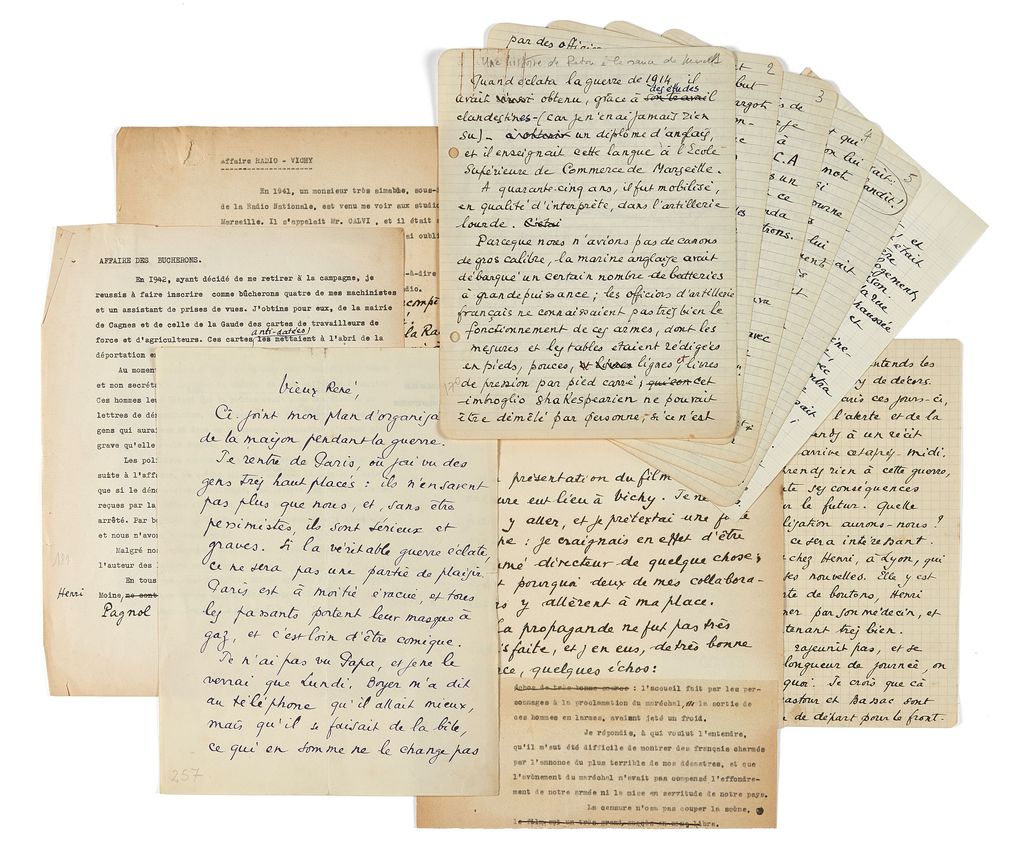 par des officie
Une histoire de
Quand éclata la guerre de 1914 il
des études
avait réussi obtenu, grâce à son travail
clandestines - (car je n'en ai jamais rien
su) - à obtenir un diplôme d'anglais,
et il enseignait cette langue à l'Ecole
Supérieure de Commerce de Marseille.
A quarante-cinq ans, il fut mobilisé,
en qualité d'interprète, dans l'artillerie
lourde. C'étai
Parceque nous n'avions pas de canons
de gros calibre, la marine anglaise avait
débarqué un certain nombre de batteries
à grande puissance ; les officiers d'artillerie
français ne connaissaient pas très bien le
fonctionnement de ces armes, dont les
mesures et les tables étaient rédigées
en pieds, pouces, lignes et livres
de pression par pied carré ; qui con cet
imbroglio shakespearien ne pouvait
être démêlé par personne, si ce n'est
2
3
4
5
affaire RADIO - VICHY
En 1941, un monsieur très aimable, sous-
de la Radio Nationale, est venu me voir aux studi
Marseille. Il s'appelait Mr. CALVI, et il était
AFFAIRE DES BUCHERONS.
En 1942, ayant décidé de me retirer à la campagne, je
reussis à faire inscrire comme bûcherons quatre de mes machinistes
et un assistant de prises de vues. J'obtins pour eux, de la mairie
de Cagnes et de celle de la Gaude des cartes de travailleurs de
force et d'agriculteurs. Ces cartes (anti-datées) les mettaient à l'abri de la
déportation e
Au momen
et mon secréta
Ces hommes leu
lettres de dé
gens qui aurai
grave qu'elle
Les poli
suite à l'affa
que si le dén
reçues par la
arrêté. Par b
et nous n'avo
Malgré no
l'auteur des l
En tous
Henri Moine,
Pagnol
181
Vieux René,
Ci. joint mon plan d'organisa
de la maison pendant la guerre.
Je rentre de Paris, où j'ai vu des
gens très haut placés : ils n'en savent
pas plus que nous, et, sans être
pessimistes, ils sont sérieux et
graves. Si la véritable guerre éclate,
ce ne sera pas une partie de plaisir.
Paris est à moitié évacué, et tous
les passants portent leur masque à
gaz, et c'est loin d'être comique.
Je n'ai pas vu Papa, et je ne le
verrai que Lundi. Boyer m'a dit
au téléphone qu'il allait mieux,
mais qu'il se faisait de la bile,
ce qui en somme ne le change pas
257
présentation du film
ure eut lieu à Vichy. Je ne
y aller, et je prétextai une
he : je craignais en effet d'être
mé directeur de quelque chose ;
t pourquoi deux de mes collabora-
s y allèrent à ma place.
a propagande ne fut pas très
isfaite, et j'en eus, de très bonne
ce, quelques échos :
échos de très bonne source : l'accueil fait par les per-
sonnages à la proclamation du maréchal, la sortie de
ces hommes en larmes, avaient jeté un froid.
Je répondis, à qui voulut l'entendre,
qu'il m'eut été difficile de montrer des français charmés
par l'annonce du plus terrible de nos désastres, et que
l'avènement du maréchal n'avait pas compensé l'effondre-
ment de notre armée ni la mise en servitude de notre pays.
La censure n'osa pas couper la scène,
le film eut un très grand succès en zone libre.
entends les
y de décors.
aris ces jours-ci,
l'alerte et de la
ends à un récit
arrive cet après-midi.
rends rien à cette guerre,
te ses conséquences
r le futur. Quelle
lisation aurons-nous ?
ce sera intéressant.
chez Henri, à Lyon, qui
es nouvelles. Elle y est
te de boutons, Henri
ner par son médecin, et
tenant très bien.
rajeunit pas, et se
longueur de journée, on
quoi. Je crois que ça
astour et Bassac sont
n de départ pour le front.